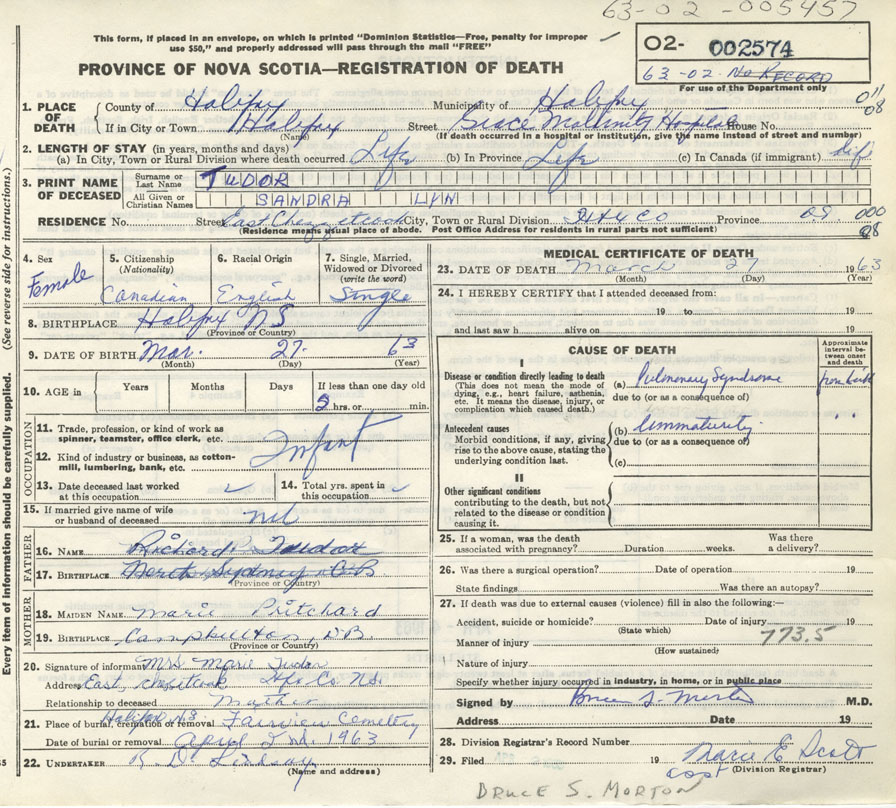 63-02-005457
This form, if placed in an envelope, on which is printed "Dominion Statistics—Free, penalty for improper
use $50," and properly addressed will pass through the mail "FREE"
O2- 002574
63-02- No RECORD
For use of the Department only
PROVINCE OF NOVA SCOTIA—REGISTRATION OF DEATH
1. PLACE OF DEATH
County of Halifax Municipality of Halifax 011
If in City or Town Halifax Street Grace Maternity Hospital House No. 08
(Name) (If death occurred in a hospital or institution, give the name instead of street and number)
2. LENGTH OF STAY (in years, months and days)
(a) In City, Town or Rural Division where death occurred Life (b) In Province Life (c) In Canada (if immigrant) life
3. PRINT NAME OF DECEASED
Surname or Last Name TUDOR
All Given or Christian Names SANDRA LYN
RESIDENCE No. Street East Chezzetcook City, Town or Rural Division Hfx Co Province 09 000
(Residence means usual place of abode. Post Office Address for residents in rural parts not sufficient) 08
4. Sex Female
5. Citizenship (Nationality) Canadian
6. Racial Origin English
7. Single, Married, Widowed or Divorced (write the word) Single
8. BIRTHPLACE Halifax NS
(Province or Country)
9. DATE OF BIRTH Mar. 27. 63
(Month) (Day) (Year)
10. AGE in Years Months Days If less than one day old
2 hrs. or min.
OCCUPATION
11. Trade, profession, or kind of work as
spinner, teamster, office clerk, etc. Infant
12. Kind of industry or business, as cotton-
mill, lumbering, bank, etc.
13. Date deceased last worked
at this occupation
14. Total yrs. spent in
this occupation
15. If married give name of wife
or husband of deceased nil
FATHER
16. NAME Richard Tudor
17. BIRTHPLACE North Sydney CB
(Province or Country)
MOTHER
18. MAIDEN NAME Marie Pritchard
19. BIRTHPLACE Campbellton, NB
(Province or Country)
20. Signature of informant Mrs Marie Tudor
Address East, Chezetcook Hfx Co NS.
Relationship to deceased Mother
21. Place of burial, cremation or removal Halifax NS Fairview Cemetery
Date of burial or removal April 2nd. 1963
22. UNDERTAKER R. D. Lindsay
(Name and address)
(See reverse side for instructions.)
Every item of information should be carefully supplied.
MEDICAL CERTIFICATE OF DEATH
23. DATE OF DEATH March 27 1963
(Month) (Day) (Year)
24. I HEREBY CERTIFY that I attended deceased from:
19 to 19
and last saw h alive on 19
CAUSE OF DEATH
Approximate interval between onset and death
I
Disease or condition directly leading to death
(This does not mean the mode of
dying, e.g., heart failure, asthenia,
etc. It means the disease, injury, or
complication which caused death.)
(a) Pulmonary Syndrome from birth
due to (or as a consequence of)
Antecedent causes
Morbid conditions, if any, giving
rise to the above cause, stating the
underlying condition last.
(b) Immaturity " "
due to (or as a consequence of)
(c)
II
Other significant conditions
contributing to the death, but not
related to the disease or condition
causing it.
25. If a woman, was the death
associated with pregnancy? Duration weeks. Was there
a delivery?
26. Was there a surgical operation? Date of operation 19
State findings Was there an autopsy?
27. If death was due to external causes (violence) fill in also the following:—
Accident, suicide or homicide? Date of injury 19
(State which) 773.5
Manner of injury
(How sustained)
Nature of injury
Specify whether injury occurred in industry, in home, or in public place
Signed by Bruce S. Morton M.D.
Address Date 19
28. Division Registrar's Record Number
29. Filed 19 Marie E Scott
(Division Registrar)
BRUCE S. MORTON